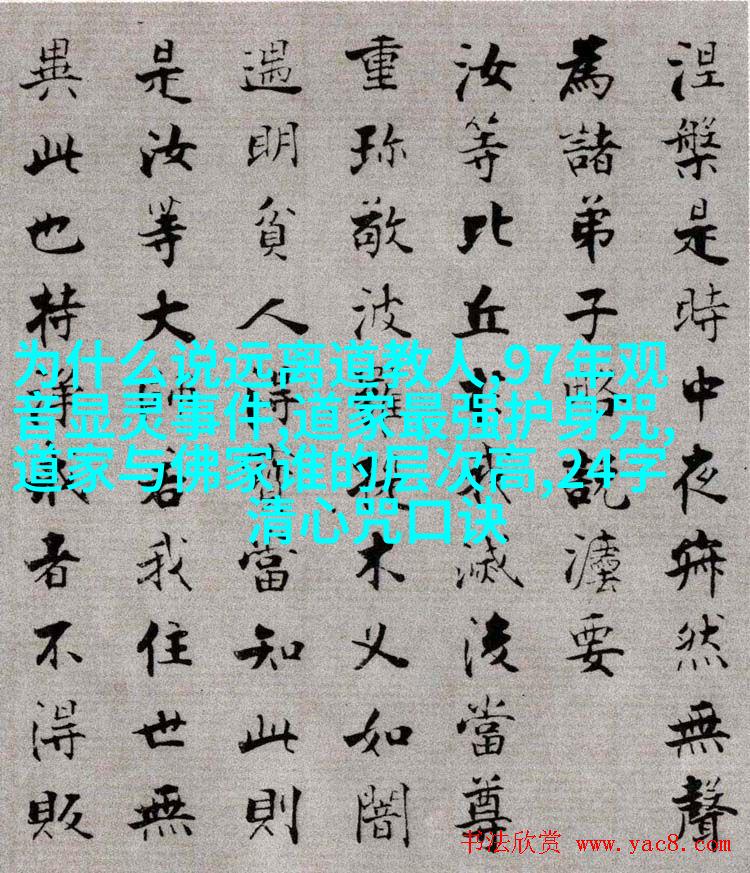 涅槃是時中夜寂然無聲
為諸弟子略說灋要
汝等比丘於我滅後當尊
重珍敬波羅提木叉如闇
遇明貧人得寶當知此則
是汝等大師若我住世無
異此也持淨戒者不得販
为什么说远离道教人,97年观
音显灵事件,道家最强护身咒,
道家与佛家谁的层次高,24字
清心咒口诀
书法欣赏 www.yac8.com